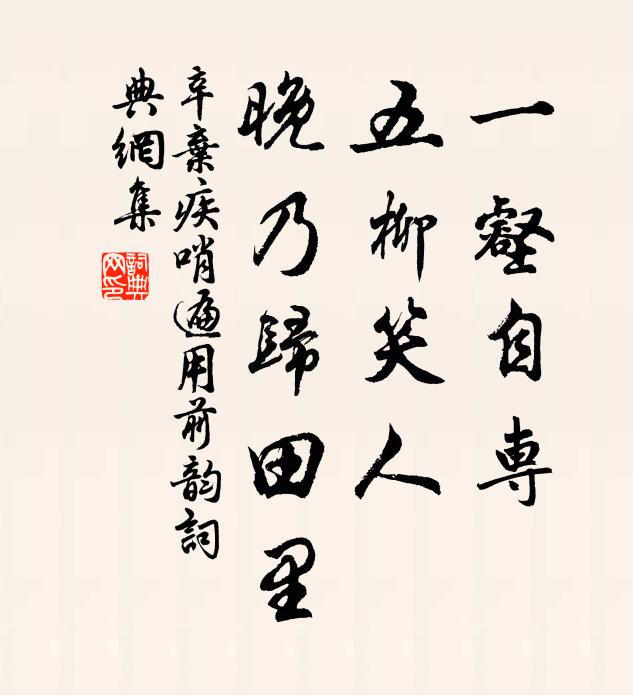 一壑自専
五柳笑人
晚乃歸田里
辛棄疾哨遍用前韵詞
典網集
詞典
网印